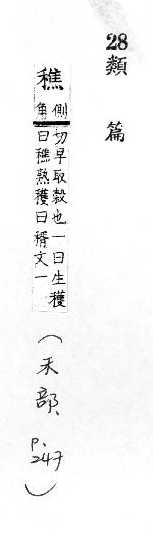 28類篇
穛側
角切早取穀也一曰生穫
曰穛熟穫曰稰文一
(禾部、P.247)